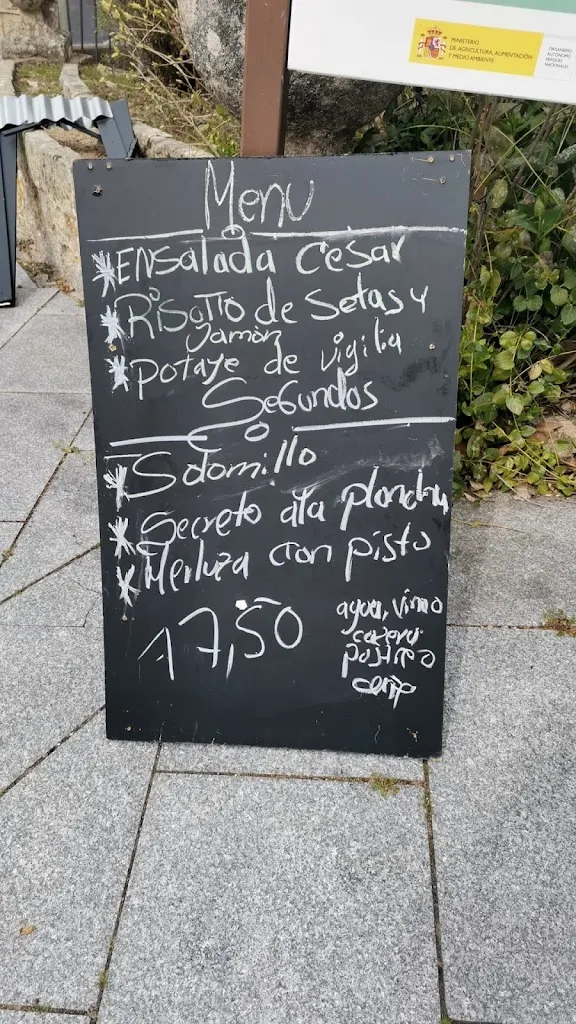 MINISTERIO
DE AGRICULTURA, ALIMENTACIÓN
Y MEDIO AMBIENTE
ORGANISMO
AUTÓNOMO
PARQUES
NACIONALES
Menu
*ENSalada Cesar
*RiSoTTo de Setas y
Jamòn
*Potaje de vigilia
SeGundos
*Solomillo
*Secreto ala plancha
*Merluza con pisto
17,50
agua, vino
postre o